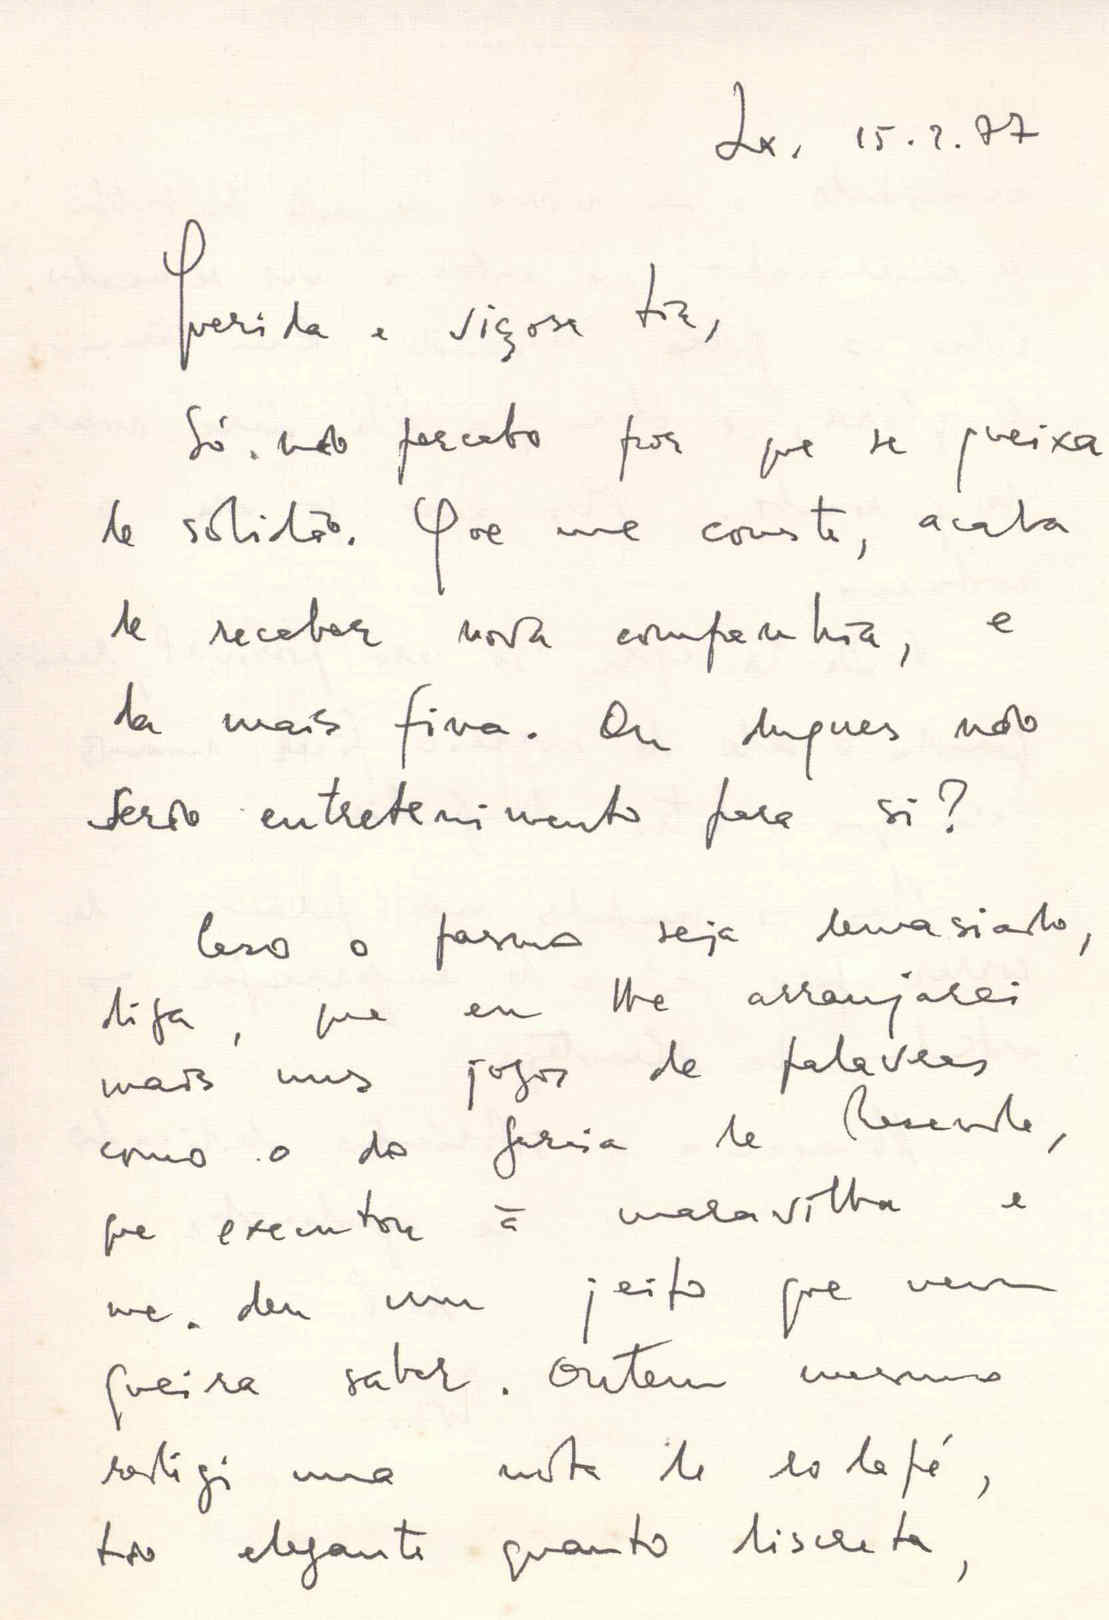 Lx. 15.2.77
Querida e viçosa tia,
Só não percebo por que se queixa
de solidão. Que me conste, acaba
de receber nova companhia, e
da mais fina. Ou duques não
serão entretenimento para si?
Caso o pasmo seja demasiado,
diga, que eu lhe arranjarei
mais uns jogos de palavras
como o do Garcia de Resende,
que executou à maravilha e
me deu um jeito que nem
queira saber. Ontem mesmo
redigi uma nota de rodapé,
tão elegante quanto discreta,